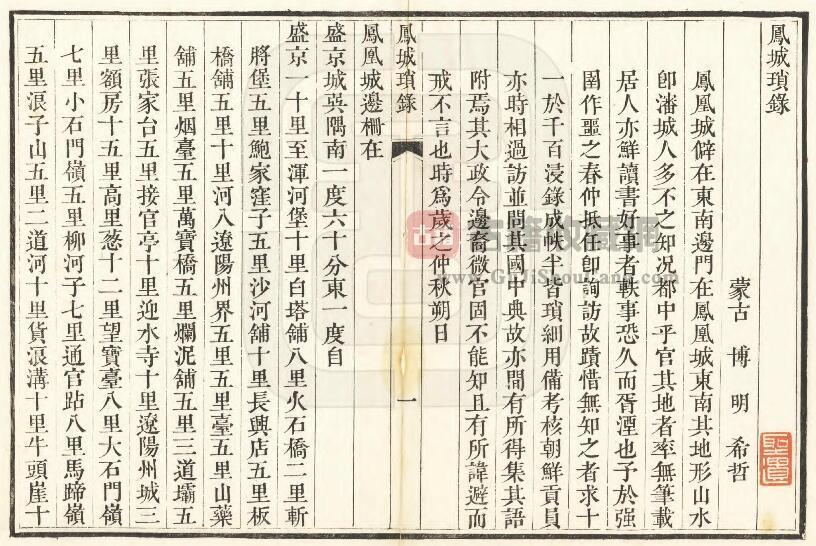 鳳城瑣錄
蒙古 博 明 希哲
鳳凰城僻在東南邊門在鳳凰城東南其地形山水
卽瀋城人多不之知况都中乎官其地者率無筆載
居人亦鮮讀書好事者軼事恐久而胥湮也予於强
圉作噩之春仲抵任卽詢訪故蹟惜無知之者求十
一於千百漫錄成帙半皆瑣細用備考核朝鮮貢員
亦時相過訪並問其國中典故亦間有所得集其語
附焉其大政令邊裔微官固不能知且有所諱避而
戒不言也時爲歲之仲秋朔日
鳳城瑣錄
一
鳳凰城邊柵在
盛京城巽隅南一度六十分東一度自
盛京一十里至渾河堡十里白塔舖八里火石橋二里斬
將堡五里鮑家窪子五里沙河舖十里長興店五里板
橋舖五里十里河八遼陽州界五里五里臺五里山藥
舖五里烟臺五里萬寶橋五里爛泥舖五里三道壩五
里張家台五里接官亭十里迎水寺十里遼陽州城三
里額房十五里高里葱十二里望寶臺八里大石門嶺
七里小石門嶺五里柳河子七里通官跕八里馬蹄嶺
五里浪子山五里二道河十里貨浪溝十里牛頭崖十
古籍收藏网
www.GuJiShouCang.com